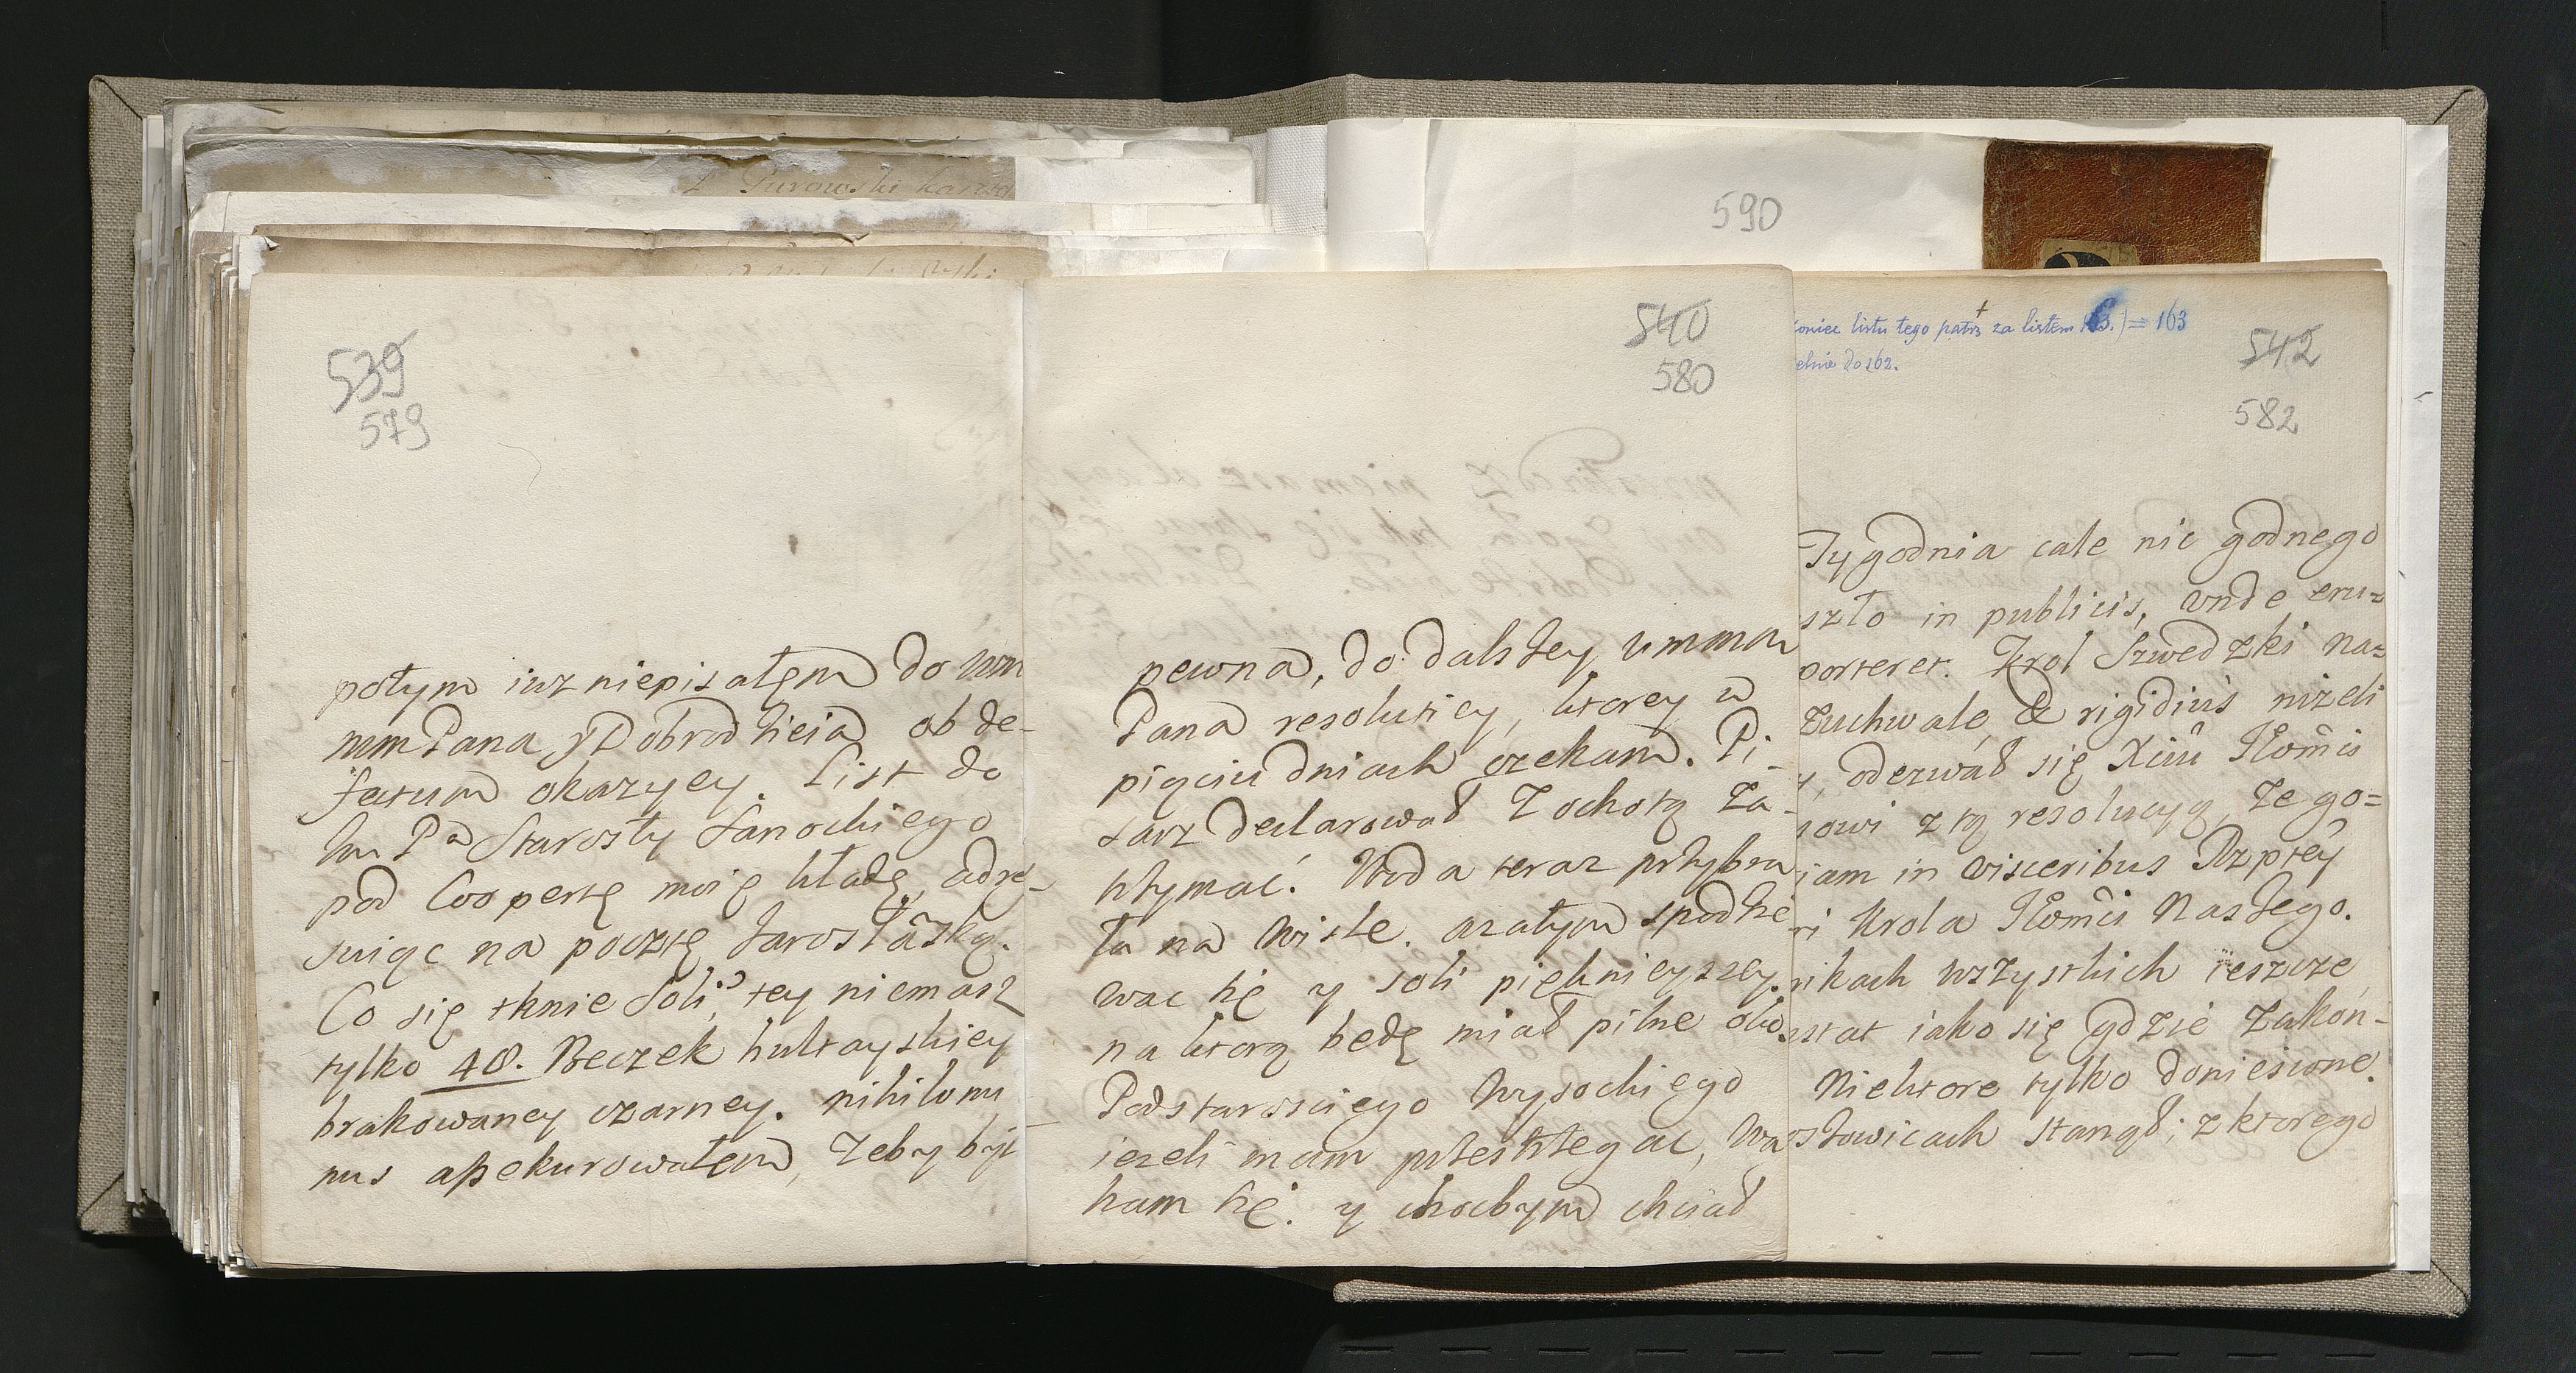 539
579
potym iuz niepisałem do wm
mm Pana y Dobrodzieia ob de-
fectum okazyey. List do
Im Pa Starosty Sanockiego
pod Coopertę moię kładę, adre-
suiąc na pocztę Jarosławską.
Co się tknie Soli, tey niemasz
tylko 40. Beczek hultayskiey
brakowaney czarney. nihilomi
nus assekurowałem, zeby być
540
580
pewna, do dalszey wmm
Pana resolutiey, ktorey w
pięciu dniach czekam. Pi-
sarz declarował z ochotą za-
trzymać. Woda teraz przybra
ła na Wisle. azatym spodzie
wac się y soli pięknieyszey.
na ktorą będę miał pilne oko.
Podstarosciego Wysockiego
iezeli mam przestrzegac, wa
ham się. y chocbym chciał
590
koniec listu tego patrz za listem = 163
do 162.
542
582
Tygodnia cale nic godnego
szło in publicis, unde eru=
Krol Szwedzki na=
zuchwale, & rigidius nizeli
odezwał się Xiu Jłomci
z tą resolucyą, ze go=
iam in visceribus Rzptey
Krola Jłomci Naszego.
wszystkich ieszcze
iako się gdzie zakon-
Niektore tylko doniesione.
stanął; z ktorego